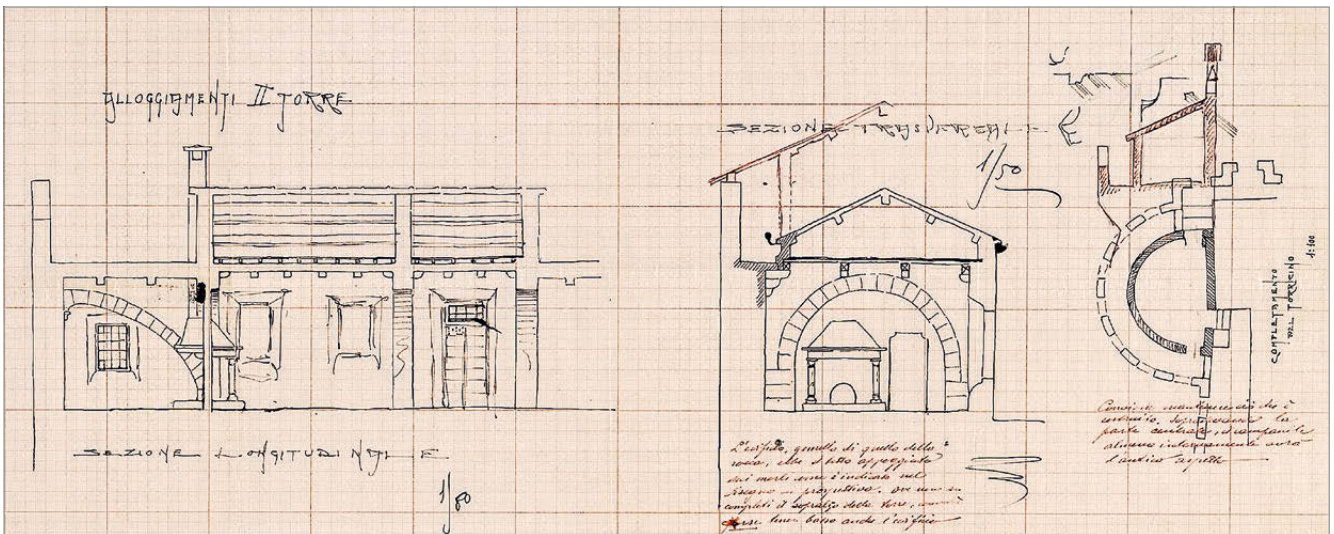 ALLOGGIAMENTI II TORRE
SEZIONE LONGITUDINALE
1/50
SEZIONE TRASVERSALE
1/50
L'edificio, gemello di quello della
rocca, ebbe il tetto appoggiato
dai merli come è indicato nel
disegno in prospettiva. Ove non si
completi il sopralzo della torre,
forse tener basso anche l'edificio
COMPLETAMENTO
DEL TORRICINO
1:100
Conviene mantenere ciò che è
costruito.
parte centrale,
almeno internamente avrà
l'antico aspetto